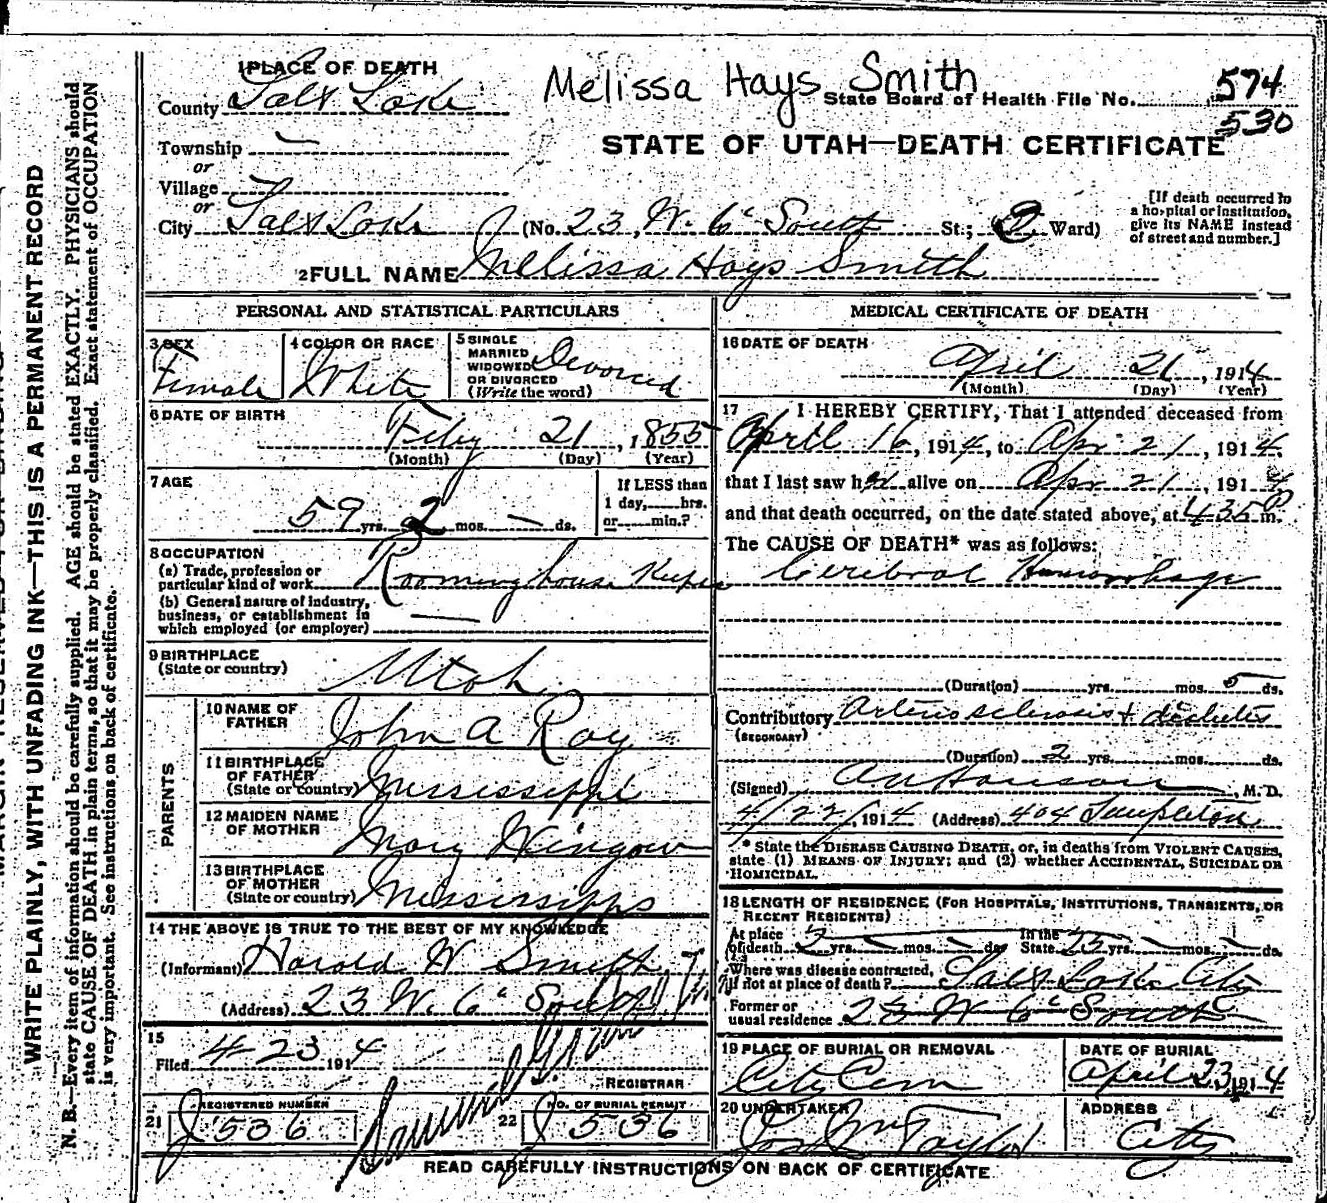 1 PLACE OF DEATH
Melissa Hays Smith
County Salt Lake
State Board of Health File No. 574
530
Township —
STATE OF UTAH—DEATH CERTIFICATE
or
Village
or
City Salt Lake (No. 23, W. 6" South St.; 2 Ward)
[If death occurred in a hospital or institution, give its NAME instead of street and number.]
2 FULL NAME Melissa Hays Smith
PERSONAL AND STATISTICAL PARTICULARS
3 SEX
Female
4 COLOR OR RACE
White
5 SINGLE
MARRIED
WIDOWED
OR DIVORCED
(Write the word)
Divorced
6 DATE OF BIRTH
Feby 21, 1855
(Month) (Day) (Year)
7 AGE
59 yrs. 2 mos. — ds.
If LESS than
1 day, hrs.
or min.?
8 OCCUPATION
(a) Trade, profession or
particular kind of work Rooming house Keeper
(b) General nature of industry,
business, or establishment in
which employed (or employer) —
9 BIRTHPLACE
(State or country) Utah
PARENTS
10 NAME OF
FATHER John A Ray
11 BIRTHPLACE
OF FATHER
(State or country) Mississippi
12 MAIDEN NAME
OF MOTHER Mary
13 BIRTHPLACE
OF MOTHER
(State or country) Mississippi
14 THE ABOVE IS TRUE TO THE BEST OF MY KNOWLEDGE
(Informant) Harold W Smith
(Address) 23 W. 6" South
15
Filed 4-23 1914
REGISTRAR
21 REGISTERED NUMBER
J 536
22 NO. OF BURIAL PERMIT
J 536
MEDICAL CERTIFICATE OF DEATH
16 DATE OF DEATH
April 21, 1914
(Month) (Day) (Year)
17 I HEREBY CERTIFY, That I attended deceased from
April 16, 1914, to Apr 21, 1914,
that I last saw her alive on Apr 21, 1914
and that death occurred, on the date stated above, at 435 P m.
The CAUSE OF DEATH* was as follows:
Cerebral Hemorrhage
(Duration) yrs. mos. 5 ds.
Contributory Arterio sclerosis + diabetes
(SECONDARY)
(Duration) 2 yrs. mos. ds.
(Signed) , M. D.
4/22/, 1914 (Address) 404 Templeton
* State the DISEASE CAUSING DEATH, or, in deaths from VIOLENT CAUSES,
state (1) MEANS OF INJURY; and (2) whether ACCIDENTAL, SUICIDAL OR
HOMICIDAL.
18 LENGTH OF RESIDENCE (FOR HOSPITALS, INSTITUTIONS, TRANSIENTS, OR
RECENT RESIDENTS)
At place
of death yrs. — mos. — ds.
In the
State 25 yrs. — mos. — ds.
Where was disease contracted,
if not at place of death? Salt Lake City
Former or
usual residence 23 W 6" South
19 PLACE OF BURIAL OR REMOVAL
City Cem
DATE OF BURIAL
April 23, 1914
20 UNDERTAKER
Jos Wm Taylor
ADDRESS
City
READ CAREFULLY INSTRUCTIONS ON BACK OF CERTIFICATE
WRITE PLAINLY, WITH UNFADING INK—THIS IS A PERMANENT RECORD
N. B.—Every item of information should be carefully supplied. AGE should be stated EXACTLY. PHYSICIANS should
state CAUSE OF DEATH in plain terms, so that it may be properly classified. Exact statement of OCCUPATION
is very important. See instructions on back of certificate.